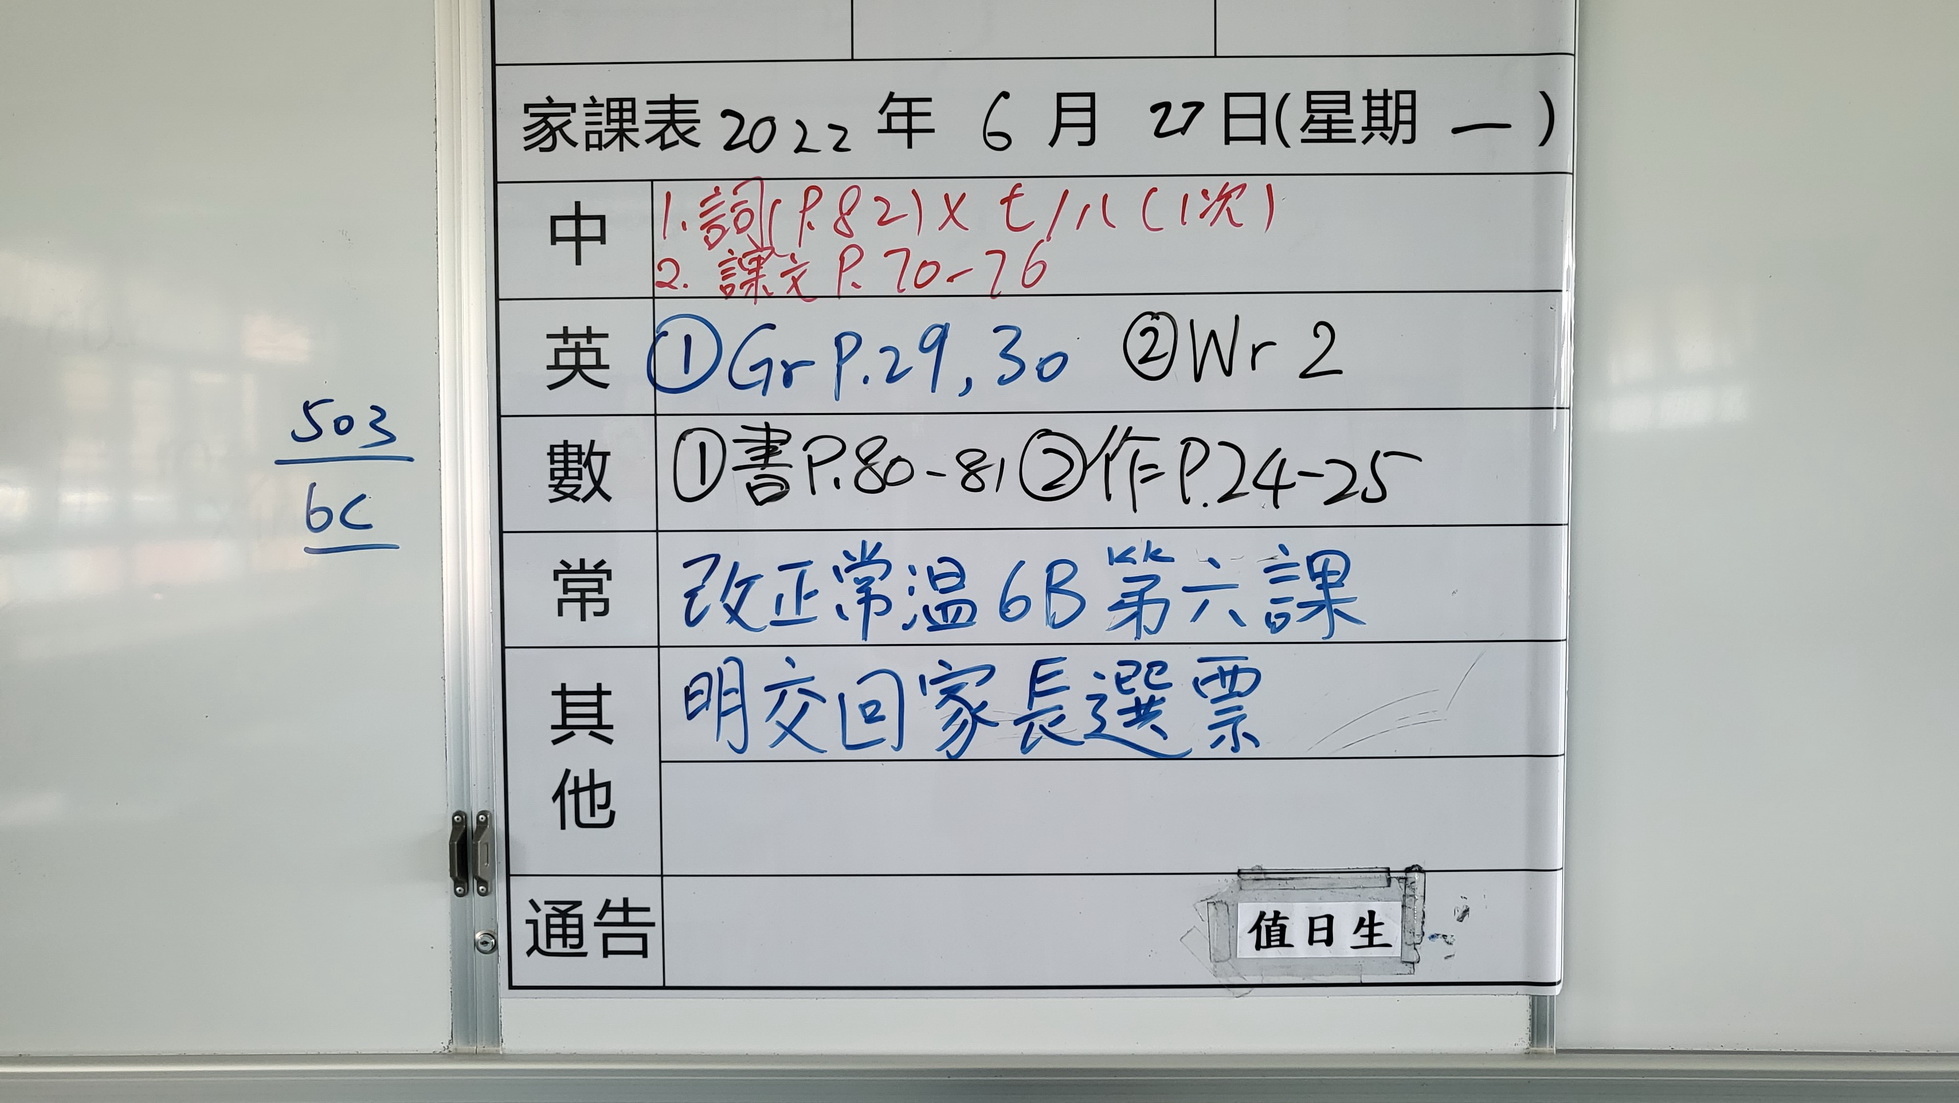 家課表 2022 年 6 月 27 日(星期 一 )
中
1. 詞(P.82) X 七/八 (1次)
2. 課文 P. 70-76
英
① Gr P.29, 30 ② Wr 2
數
① 書 P.80-81 ② 作 P.24-25
常
改正常温 6B 第六課
其他
明交回家長選票
通告
值日生
503
6C